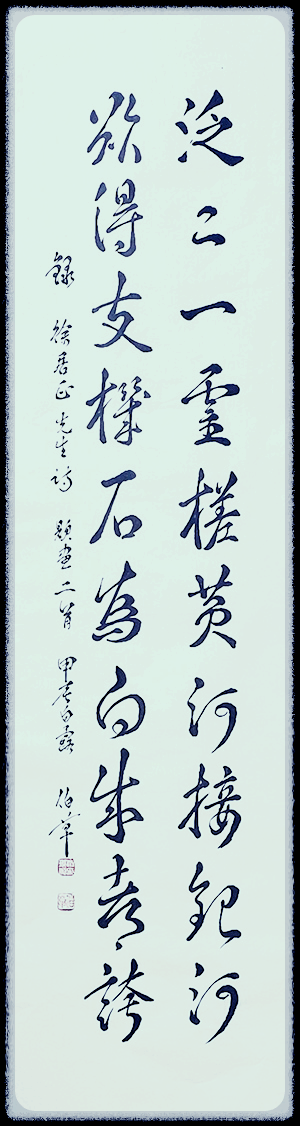 泛〻一靈槎黃河接銀河
欲得支機石為向成都誇
錄 徐居正先生詩 題畫二首 甲辰白露